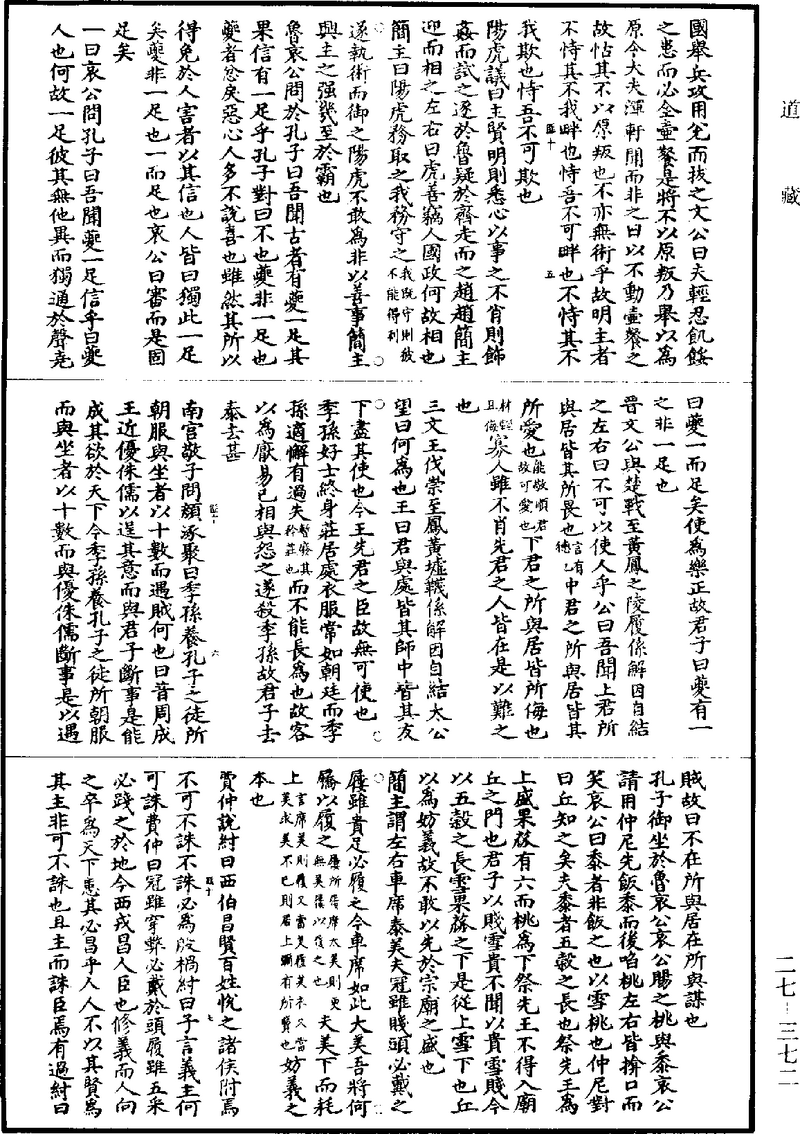 道藏
國舉兵攻用兊而拔之文公曰夫輕忍飢餒
之患而必全壺餐是將不以原叛乃舉以爲
原令大夫渾軒聞而非之曰以不動壺餐之
故怙其不以原叛也不亦無術乎故明主者
不恃其不我畔也恃吾不可畔也不恃其不
我欺也恃吾不可欺也
陽虎議曰主賢明則悉心以事之不肖則飾
姦而試之逐於魯疑於齊走而之趙趙簡主
迎而相之左右曰虎善竊人國政何故相也
簡主曰陽虎務取之我務守之我既守則彼不能得利
遂執術而御之陽虎不敢爲非以善事簡主
興主之强幾至於霸也
魯哀公問於孔子曰吾聞古者有夔一足其
果信有一足乎孔子對曰不也夔非一足也
夔者忿戾惡心人多不說喜也雖然其所以
得免於人害者以其信也人皆曰獨此一足
矣夔非一足也一而足也哀公曰審而是固
足矣
一曰哀公問孔子曰吾聞夔一足信乎曰夔
人也何故一足彼其無他異而獨通於聲堯
曰夔一而足矣使爲樂正故君子曰夔有一
之非一足也
晉文公與楚戰至黃鳳之陵履係解因自結
之左右曰不可以使人乎公曰吾聞上君所
與居皆其所畏也言有德也中君之所與居皆其
所愛也能敬順君故可愛也下君之所與居皆所侮也
材輕且侮寡人雖不肖先君之人皆在是以難之
也
三文王伐崇至鳳黃墟韈係解因自結太公
望曰何爲也王曰君與處皆其師中皆其友
下盡其使也今王先君之臣故無可使也
季孫好士終身莊居處衣服常如朝廷而季
孫適懈有過失暫廢其矜莊也而不能長爲也故客
以爲厭易已相與怨之遂殺季孫故君子去
泰去甚
南宮敬子問顏涿聚曰季孫養孔子之徒所
朝服與坐者以十數而遇賊何也曰昔周成
王近優侏儒以逞其意而與君子斷事是能
成其欲於天下今季孫養孔子之徒所朝服
而與坐者以十數而與優侏儒斷事是以遇
賊故曰不在所與居在所與謀也
孔子御坐於魯哀公哀公賜之桃與黍哀公
請用仲尼先飯黍而後啗桃左右皆揜口而
笑哀公曰黍者非飯之也以雪桃也仲尼對
曰丘知之矣夫黍者五穀之長也祭先王爲
上盛果蓏有六而桃爲下祭先王不得入廟
丘之門也君子以賤雪貴不聞以貴雪賤今
以五穀之長雪果蓏之下是從上雪下也丘
以爲妨義故不敢以先於宗廟之盛也
簡主謂左右車席泰美夫冠雖賤頭必戴之
屨雖貴足必履之今車席如此大美吾將何
屩以履之屨所居席太美則更無美屨以履之也夫美下而耗
上言席美則履又當美履美衣又當美求美不已則居上彌有所費也妨義之
本也
費仲說紂曰西伯昌賢百姓悅之諸侯附焉
不可不誅不誅必爲殷禍紂曰子言義主何
可誅費仲曰冠雖穿弊必戴於頭履雖五采
必踐之於地今西戎昌人臣也修義而人向
之卒爲天下患其必昌乎人人不以其賢爲
其主非可不誅也且主而誅臣焉有過紂曰
二七-三七二